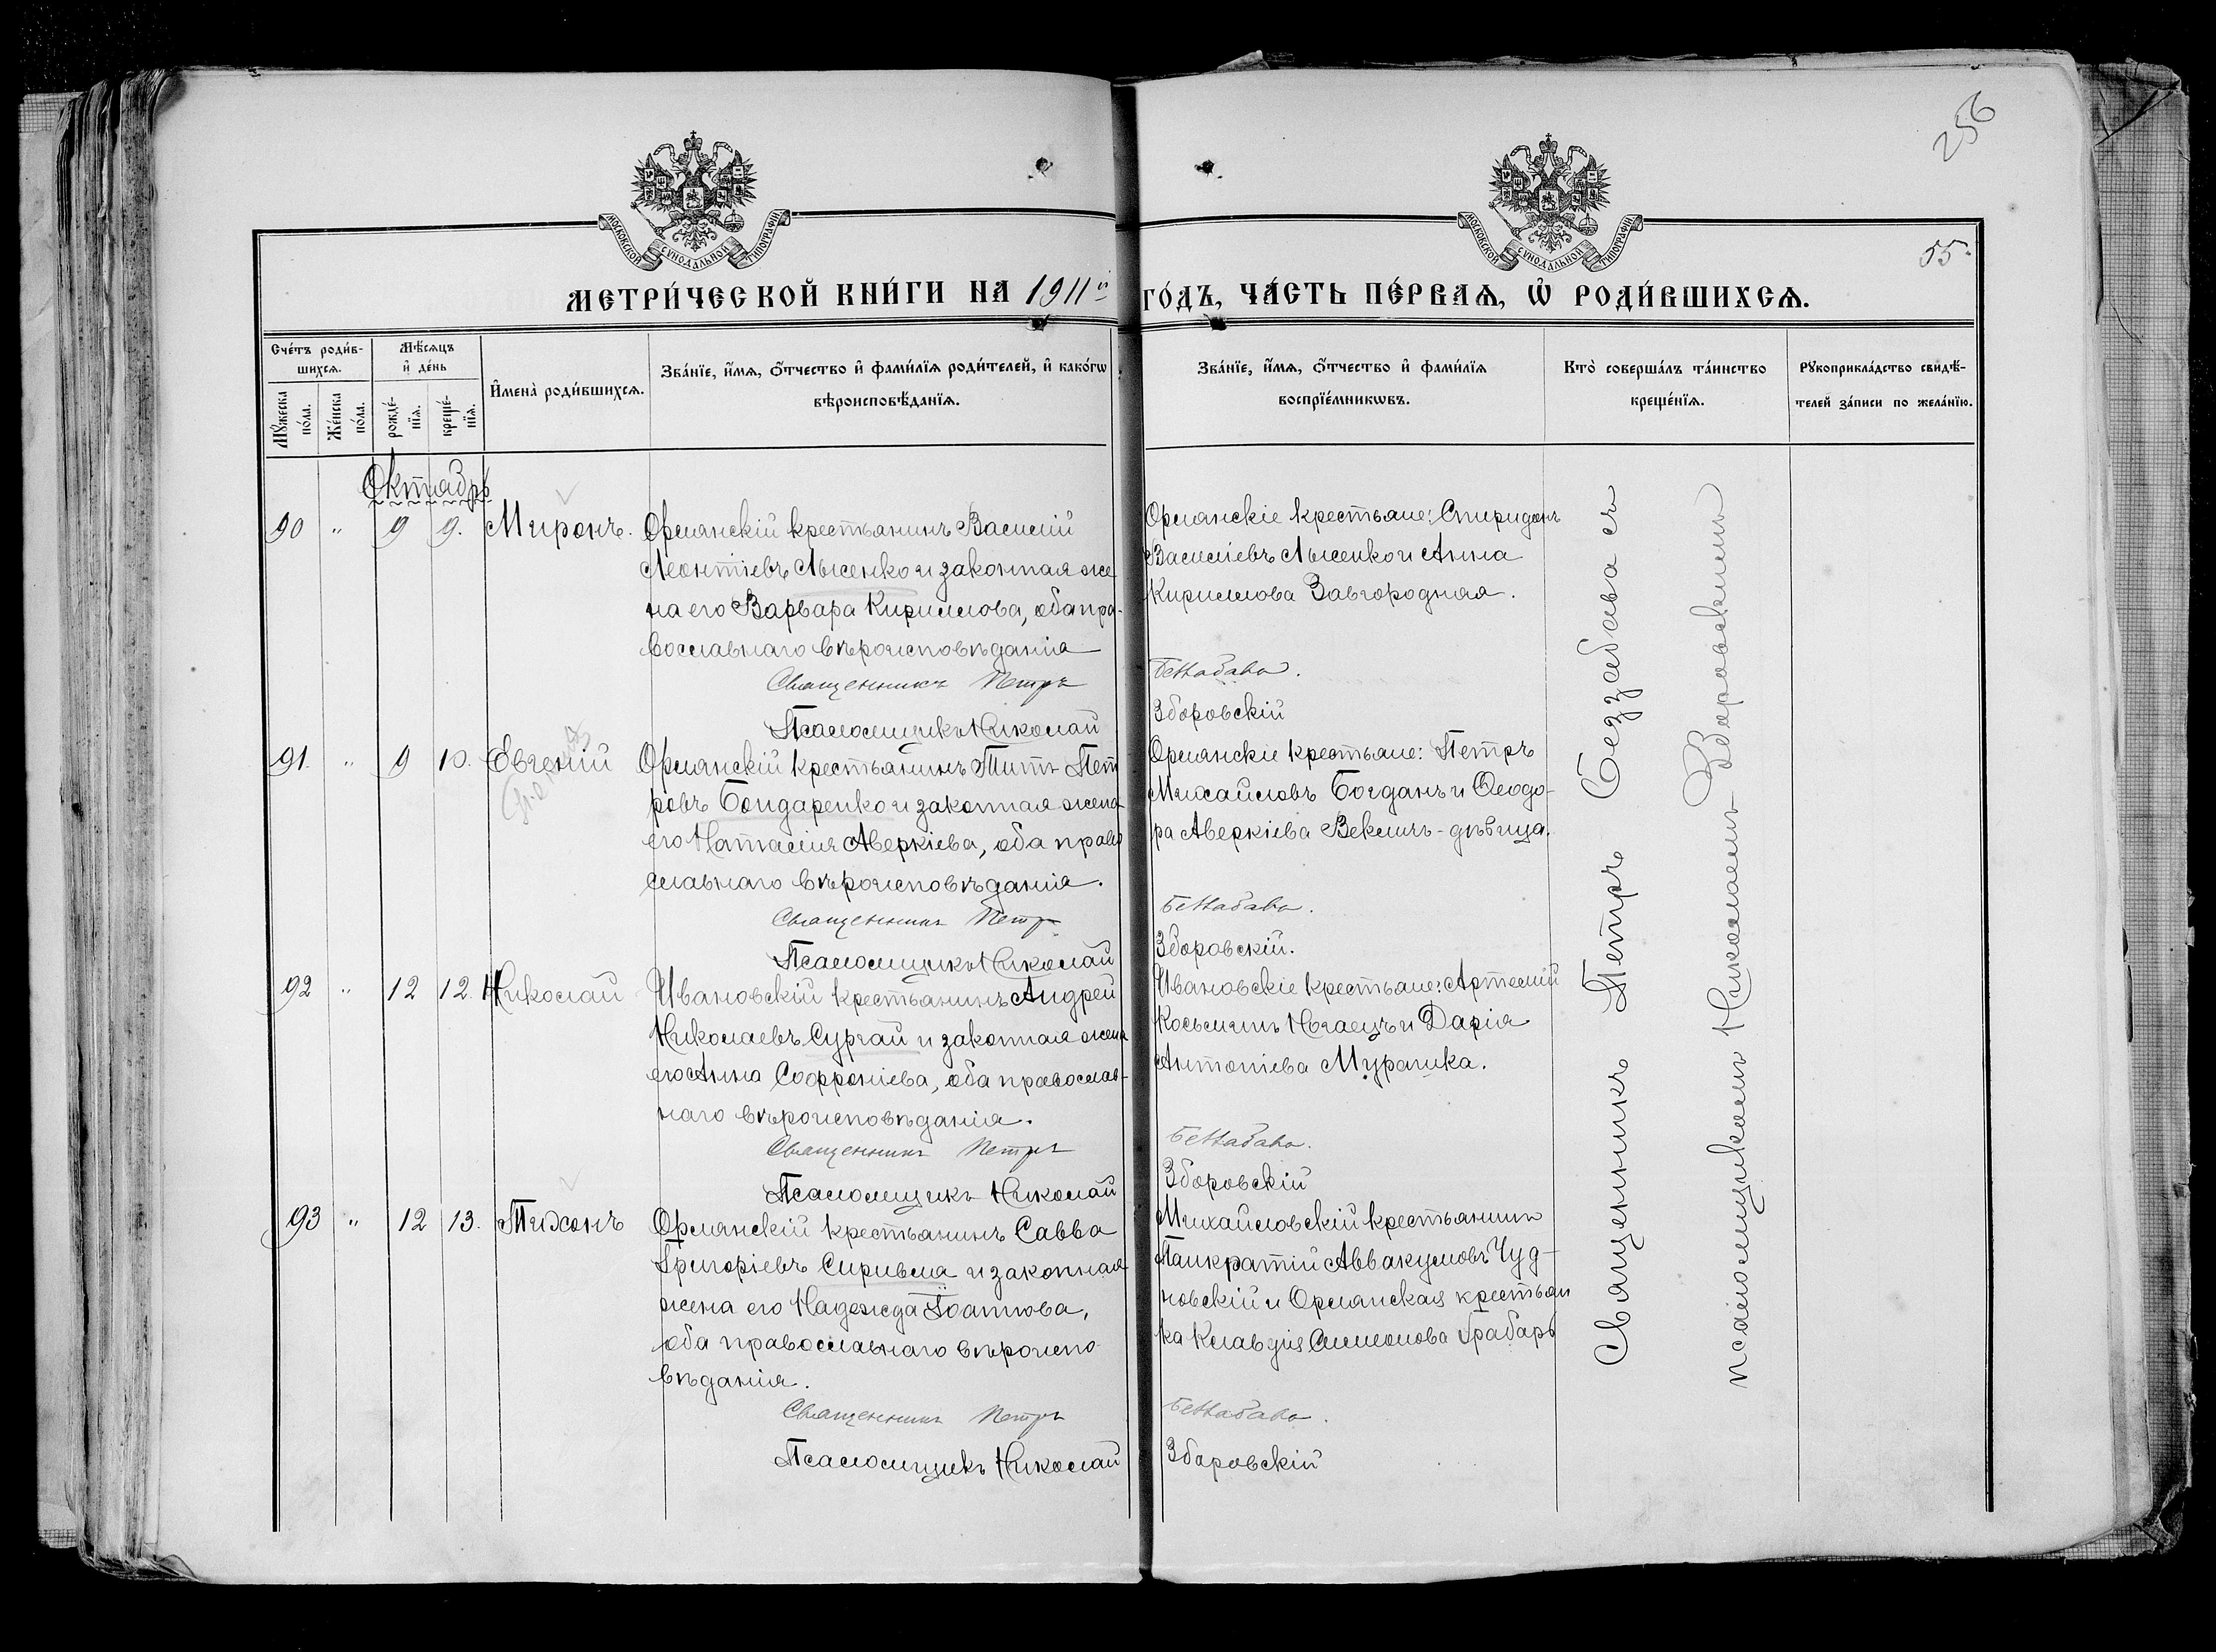 256
МОСКОВСКОЙ СѴНОДАЛЬНОЙ ТИПОГРАФІИ
МОСКОВСКОЙ СѴНОДАЛЬНОЙ ТИПОГРАФІИ
55.
МЕТРИ́ЧЕСКОЙ КНИ́ГИ НА 1911й ГО́ДЪ, ЧА́СТЬ ПЕ́РВАѦ, Ѡ҆ РОДИ́ВШИХСѦ.
Сче́тъ роди́в-
шихсѧ.
Мꙋ́жеска по́ла.
Же́нска по́ла.
Мѣ́сѧцъ
и҆ де́нь
рожде́-
нїѧ.
креще́-
нїѧ.
И҆мена̀ роди́вшихсѧ.
Зва́нїе, и҆́мѧ, ѻ҆́тчество и҆ фами́лїѧ роди́телей, и҆ како́гѡ
вѣроисповѣ́данїѧ.
Зва́нїе, и҆́мѧ, ѻ҆́тчество и҆ фами́лїѧ
воспрїе́мникѡвъ.
Кто̀ соверша́лъ та́инство
креще́нїѧ.
Рꙋкоприкла́дство свидѣ́-
телей за́писи по жела́нїю.
Октябрь
90 " 9 9. Миронъ.
Орлянскій крестьянинъ Василій
Леонтіевъ Лысенко и законная же
на его Варвара Кириллова, оба пра-
вославнаго вѣроисповѣданія
Священникъ Петръ
Псаломщикъ Николай
Орлянскіе крестьяне: Спиридонъ
Василіевъ Лысенко и Анна
Кириллова Завгородная.
Беззабава.
Зборовскій
91. " 9 10. Евгеній
Орлянскій крестьянинъ Титъ Пет
ровъ Бондаренко и законная жена
его Наталія Аверкіева, оба право
славнаго вѣроисповѣданія.
Священникъ Петръ
Псаломщикъ Николай
Орлянскіе крестьяне: Петръ
Михайловъ Богданъ и Ѳеодо-
ра Аверкіева Векличъ - дѣвица.
Беззабава.
Зборовскій.
92 " 12 12. Николай
Ивановскій крестьянинъ Андрей
Николаевъ Сургай и законная жена
его Анна Софроніева, оба православ-
наго вѣроисповѣданія.
Священникъ Петръ
Псаломщикъ Николай
Ивановскіе крестьяне: Артемій
Косьминъ Ногаецъ и Дарія
Антоніева Мурашка.
Беззабава.
Зборовскій
93 " 12 13. Тихонъ
Орлянскій крестьянинъ Савва
Григоріевъ Сиривля и законная
жена его Надежда Іоаннова,
оба православнаго вѣроиспо
вѣданія.
Священникъ Петръ
Псаломщикъ Николай
Михайловскій крестьянинъ
Панкратій Аввакумовъ Чуд-
новскій и Орлянская крестьян
ка Клавдія Симеонова Грабарь
Беззабава.
Зборовскій
Священникъ Петръ Беззабава съ
псаломщикомъ Николаемъ Зборовскимъ